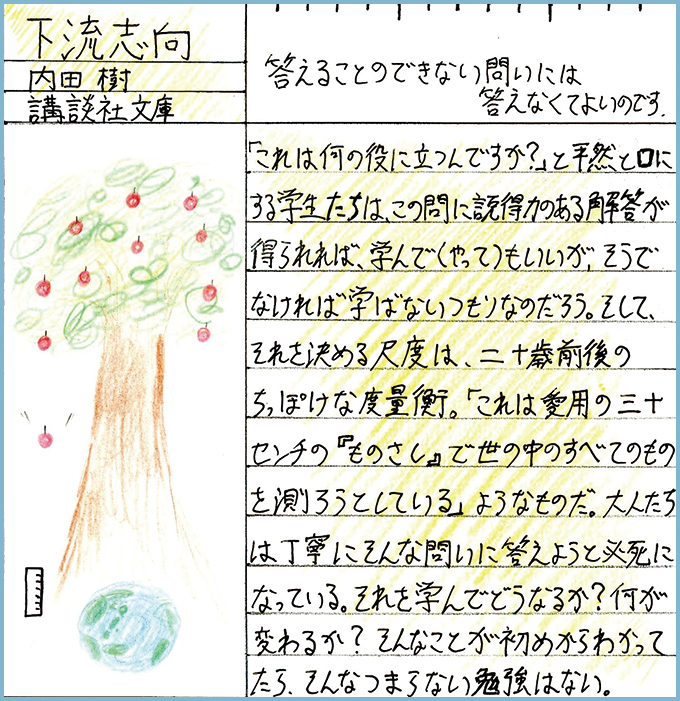 下流志向
内田 樹
講談社文庫
答えることのできない問いには
答えなくてよいのです.
「これは何の役に立つんですか?」と平然と口に
する学生たちは、この問に説得力のある解答が
得られれば、学んで(やって)もいいが、そうで
なければ学ばないつもりなのだろう。そして、
それを決める尺度は、二十歳前後の
ちっぽけな度量衡。「これは愛用の三十
センチの『ものさし』で世の中のすべてのもの
を測ろうとしている」ようなものだ。大人たち
は丁寧にそんな問いに答えようと必死に
なっている。それを学んでどうなるか?何が
変わるか? そんなことが初めからわかって
たら、そんなつまらない勉強はない。